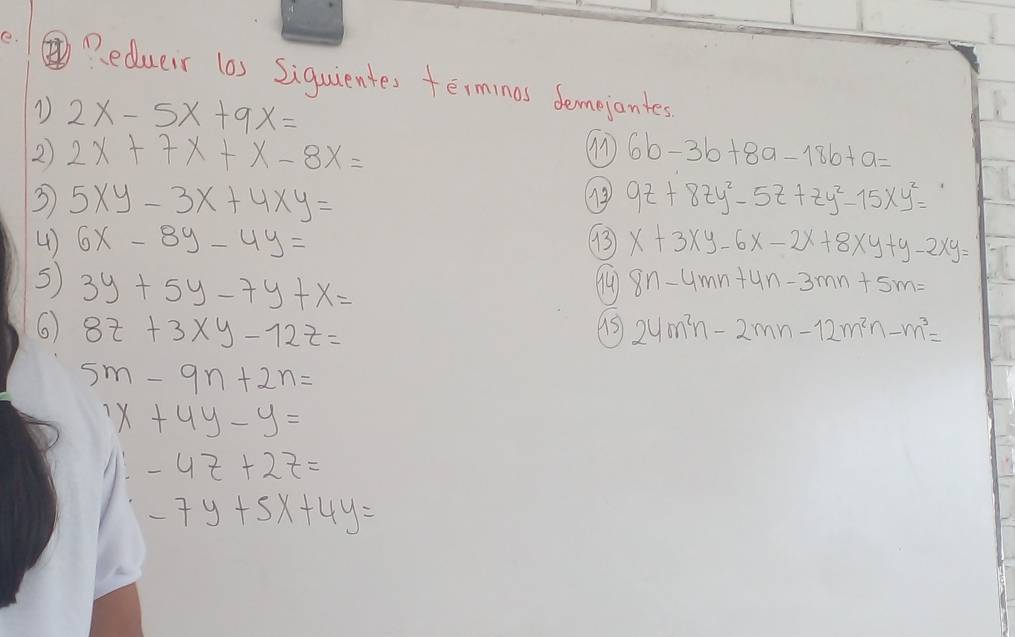 e.
II Reducir los Siguientes términos Semejantes.
1) 2x - 5x + 9x =
2) 2x + 7x + x - 8x =
3) 5xy - 3x + 4xy =
4) 6x - 8y - 4y =
5) 3y + 5y - 7y + x =
6) 8z + 3xy - 12z =
5m - 9n + 2n =
x + 4y - y =
- 4z + 2z =
- 7y + 5x + 4y =
11) 6b - 3b + 8a - 18b + a =
12) 9z + 8zy² - 5z + zy² - 15xy² =
13) x + 3xy - 6x - 2x + 8xy + y - 2xy =
14) 8n - 4mn + 4n - 3mn + 5m =
15) 24m²n - 2mn - 12m²n - m³ =